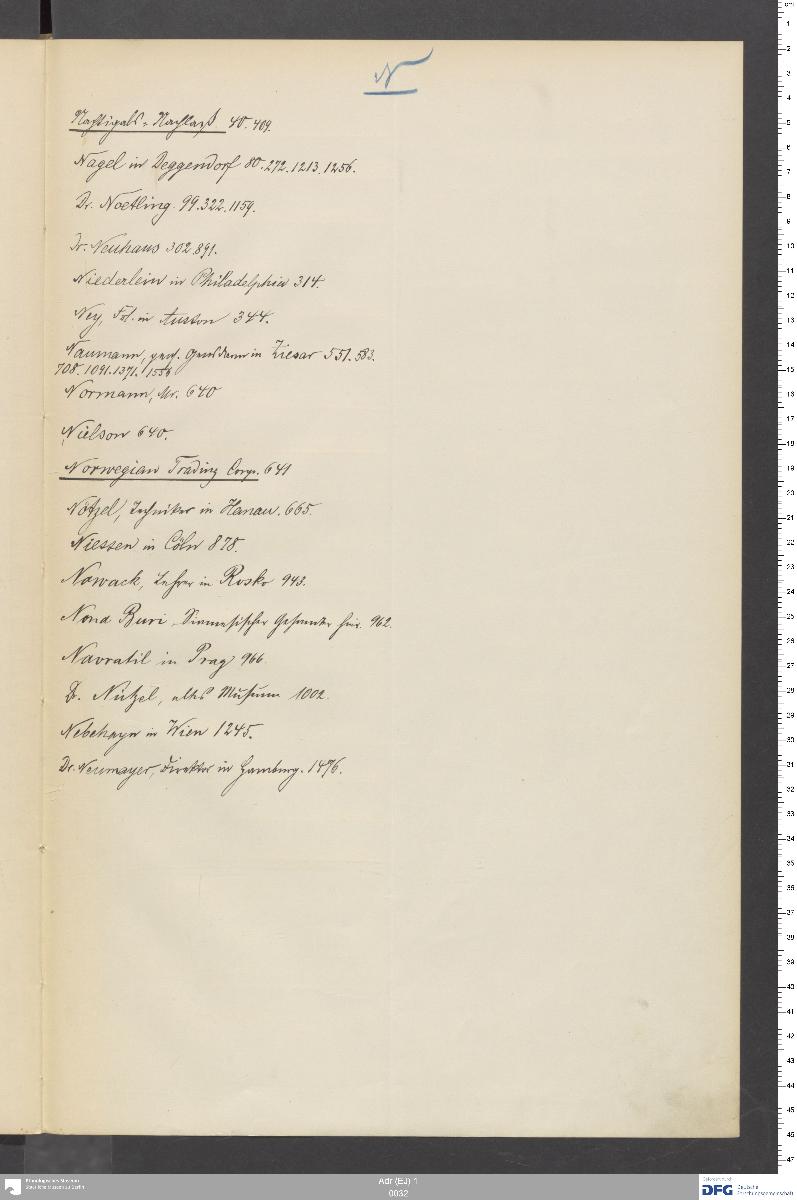 N
Nachtigals-Nachlaß 40. 409.
Nagel in Deggendorf 80. 272. 1213. 1256.
Dr. Noetling. 99. 322. 1159.
Dr. Neuhaus 302. 891.
Niederlein in Philadelphia 314.
Ney, in 344.
Naumann, Gendarm in Ziesar 551. 583.
708. 1091. 1371. 1559
Normann, Mr. 640
Nielson 640.
Norwegian Trading Corp. 641
Nötzel, Techniker in Hanau. 665.
Niessen in Cöln 878.
Nowack, Lehrer in Rosko 943.
Nond Buri, Siamesischer Gesandter hier. 962.
Navratil in Prag 966.
Dr. Nützel, altes Museum 1002.
Nebehayn in Wien 1245.
Dr. Neumayer, Direktor in Hamburg. 1476.
Ethnologisches Museum
Staatliche Museen zu Berlin
Adr (EJ) 1
0032
DFG Deutsche
Forschungsgemeinschaft